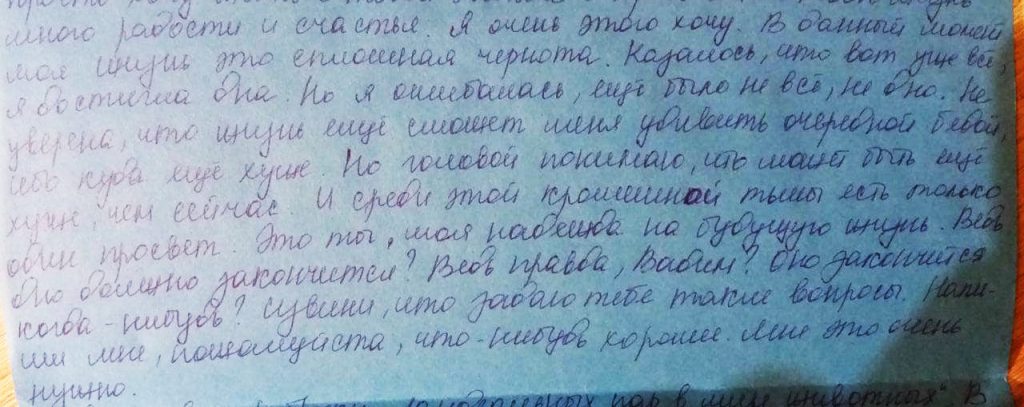 просто хочу
много радости и счастья. Я очень этого хочу. В данный момент
моя жизнь это сплошная чернота. Казалось, что вот уже всё,
я достигла дна. Но я ошибалась, ещё было не всё, не дно. Не
уверена, что жизнь ещё сможет меня удивить очередной бедой,
ибо куда ещё хуже. Но головой понимаю, что может быть ещё
хуже, чем сейчас. И среди этой крошешной тьмы есть только
один просвет. Это ты, моя надежда на будущую жизнь. Ведь
оно должно закончится? Ведь правда, Вадим? Оно закончится
когда-нибудь? Извини, что задаю тебе такие вопросы. Напи-
ши мне, пожалуйста, что-нибудь хорошее. Мне это очень
нужно.
пар в мире животных". В